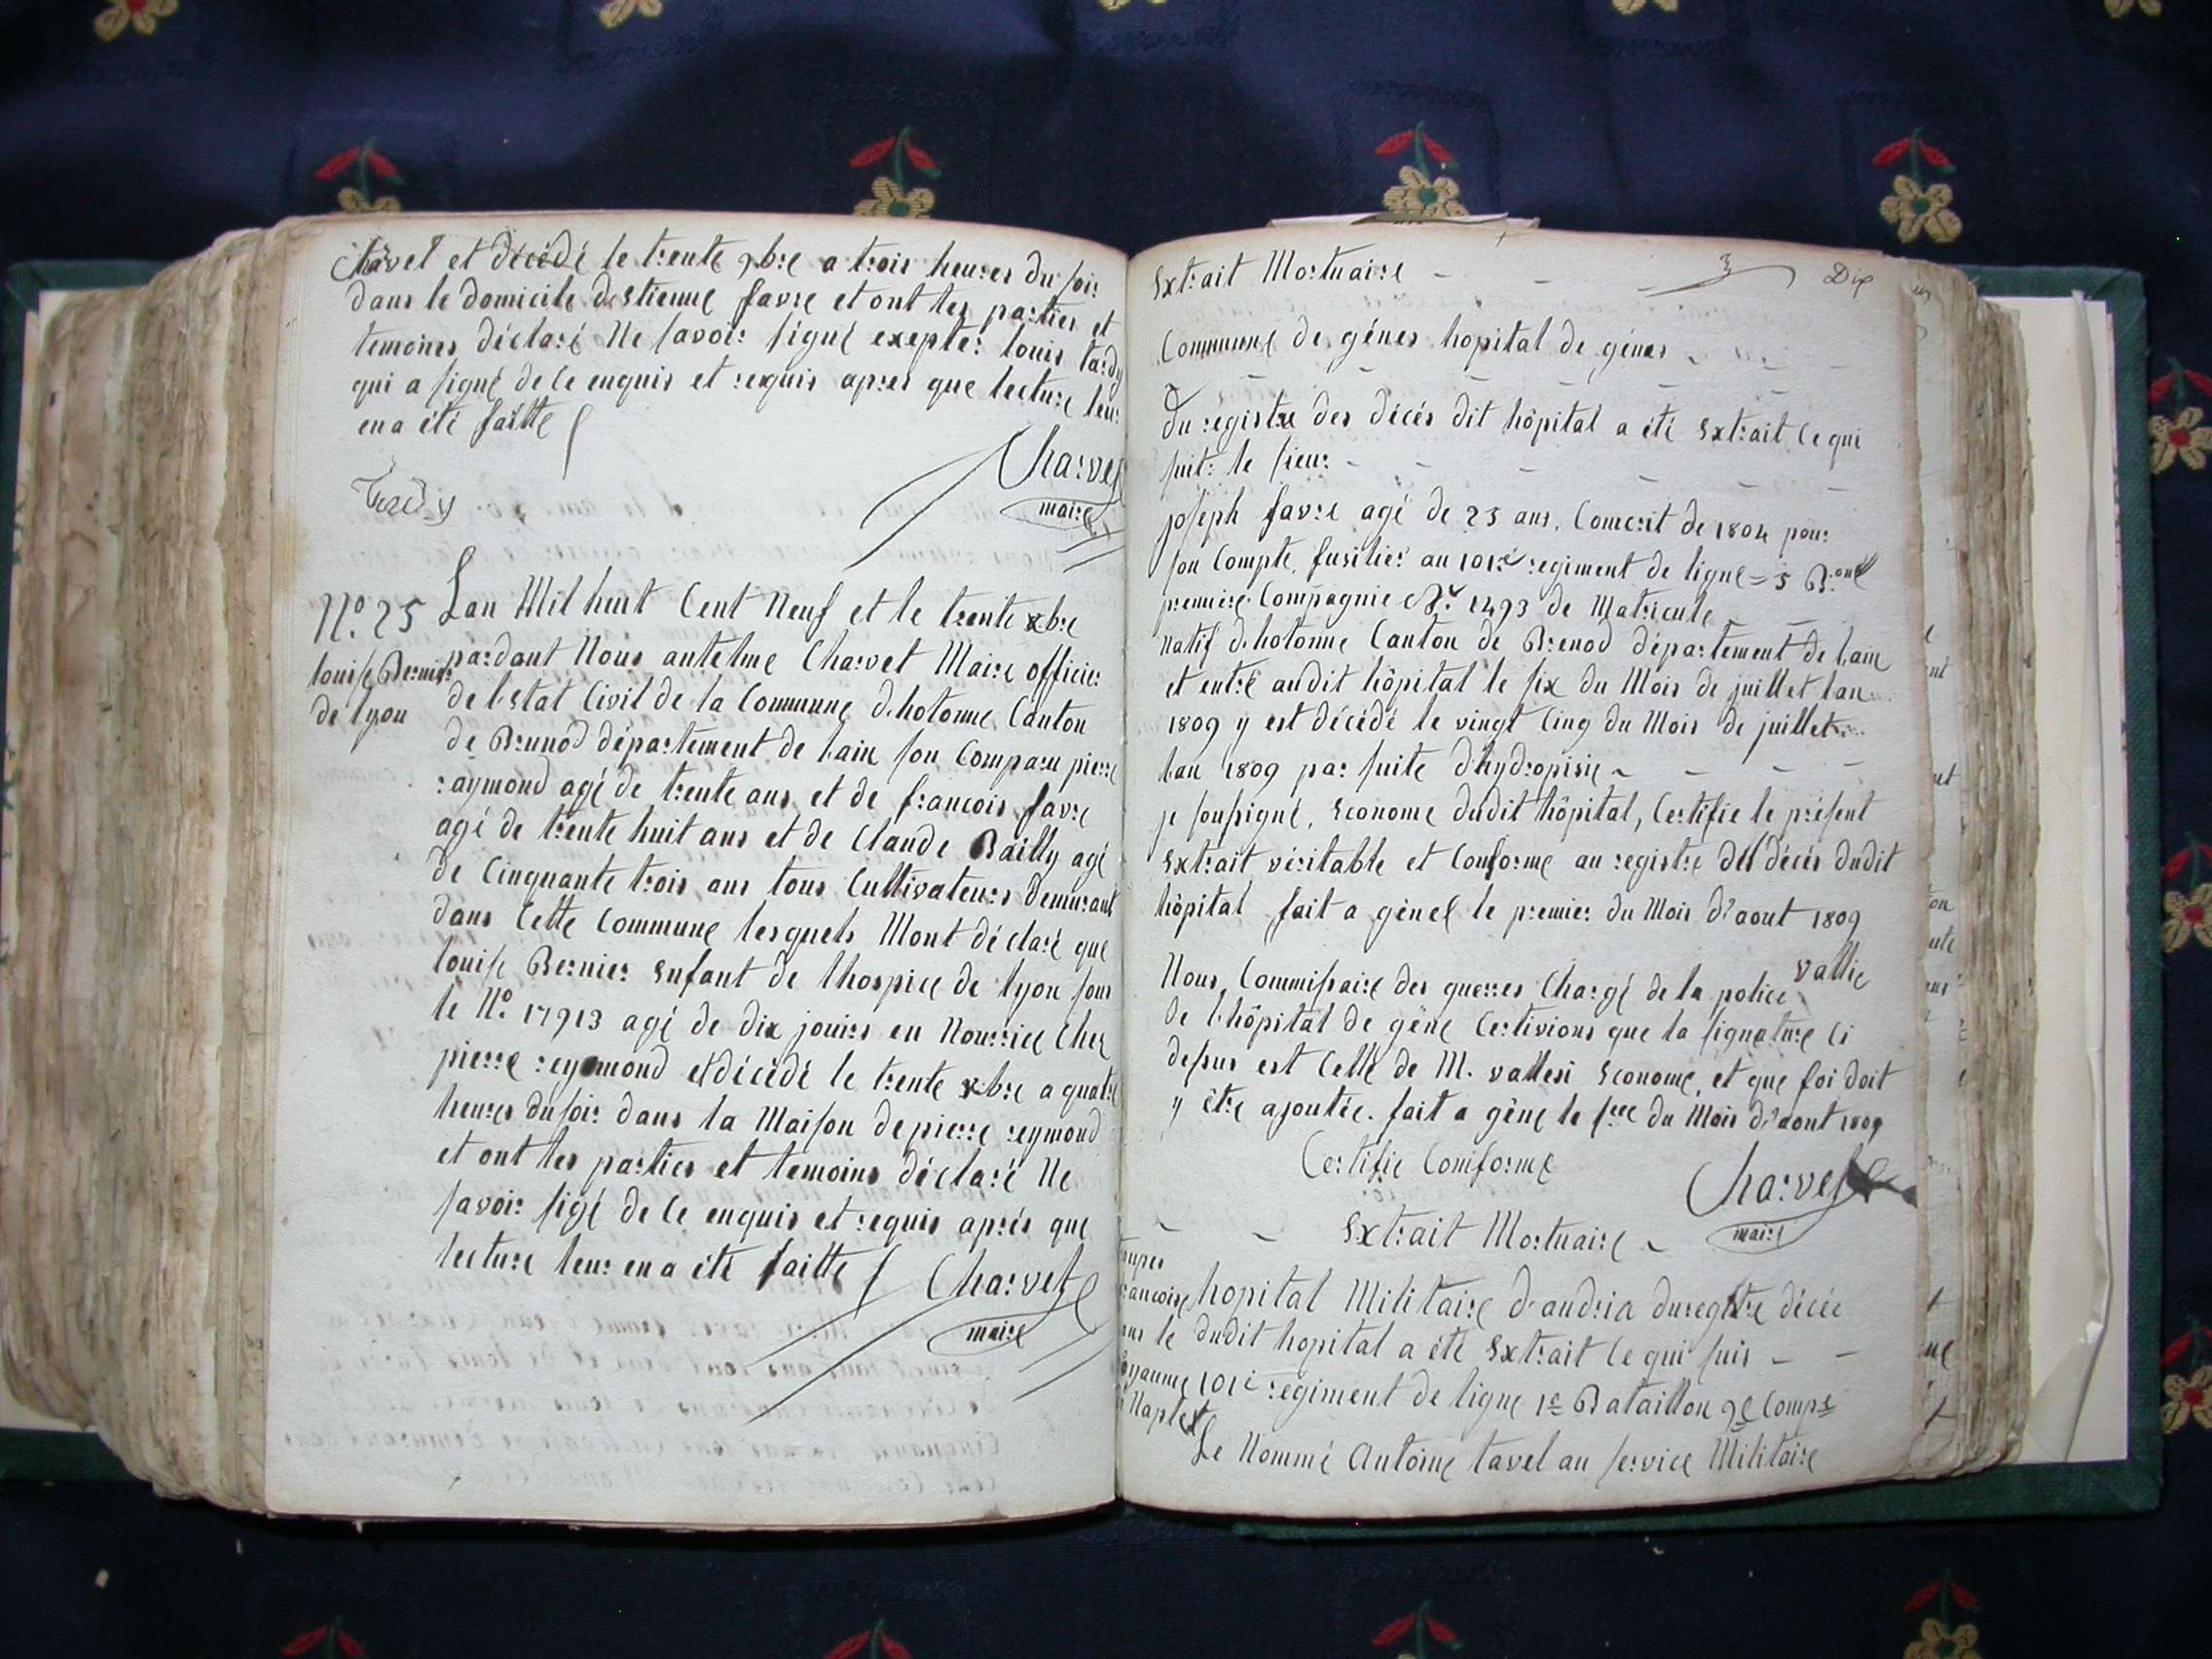 Charvet et décédé le trente 9bre a trois heures du soir
dans le domicile destienne favre et ont les parties et
temoines déclaré Ne savoir signé exepter louis tardy
qui a signé de ce enquis et requis apres que lecture leur
en a été faitte
Charvet
maire
Tardy
N.o 25 Lan Mil huit Cent Neuf et le trente xbre
louise Bernier
de lyon
pardant Nous antelme Charvet Maire officier
de l'Etat Civil de la Commune d'hotonne Canton
de Brunod département de l'ain son Comparu pierre
raymond agé de trente ans et de francois favre
agé de trente huit ans et de Claude Bailly agé
de Cinquante trois ans tous Cultivateurs demurant
dans Cette Commune lesquels Mont déclaré que
louise Bernier Enfant de lhospice de lyon sous
le N.o 17913 agé de dix jouirs en Nourrice Chez
pierre reymond et décédé le trente xbre a quatre
heures du soir dans la Maison de pierre reymond
et ont les parties et temoins déclaré Ne
savoir sigé de Ce enquis et requis aprés que
lecture leur en a été faitte
Charvet
maire
Extrait Mortuaire
Dix
Commune de génes hopital de génes
Du registre des décés dit hôpital a été Extrait Ce qui
suit: le sieur
joseph favre agé de 23 ans, Conscrit de 1804 pour
son Compte, fusilier au 101.e regiment de ligne = 5 B.one
premiere Compagnie N.o 1493 de Matricule
Natif d'hotonne Canton de Brenod département de l'ain
et entré audit hôpital le six du Mois de juillet lan
1809 y est décédé le vingt Cinq du Mois de juillet
lan 1809 par suite d'hydropisie
je soussigné, Econome dudit hôpital, Certifie le présent
Extrait véritable et Conforme au registre des décés dudit
hôpital fait a génes le premier du Mois d'aout 1809
vallie
Nous, Commissaire des guerres Chargé de la police
de l'hôpital de gêne Certivions que la signature Ci
dessus est Celle de M. vallesi Econome, et que foi doit
y être ajoutée. fait a gêne le du Mois d'aout 1809
Certifie Conforme
Charvet
maire
Extrait Mortuaire
hopital Militaire d'andria du registre décée
dudit hopital a été Extrait Ce qui suis
101.e regiment de ligne 1.e Bataillon 2.e Comp.e
Naples
Le Nommé Antoine tavel au service Militaire